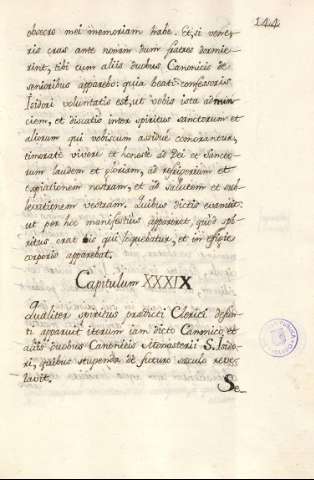 144
obsecro mei memoriam habe. Et, si vene-
ris cras ante nonam dum fratres dormie-
rint, tibi cum aliis duobus Canonicis de
senioribus apparebo: quia beati confessoris
Isidori voluntatis est, ut vobis ista adnun-
ciem, et discatis inter spiritus sanctorum et
aliorum qui vobiscum assidue comorantur,
timorate vivere et honeste ad Dei et Sancto-
rum laudem et gloriam, ad refrigerium et
expiationem nostram, et ad salutem et sub-
levationem vestram. Quibus dictis evanuit:
ut per hoc manifestius appareret, quod spi-
ritus erat hic qui loquebatur, et in effigie
corporis apparebat.
Capitulum XXXIX
Qualiter spiritus predicti Clerici defun-
ti apparuit iterum iam dicto Canonico, et
aliis duobus Canonicis Monasterii S. Isido-
ri, quibus stupenda de futuro seculo reve-
lavit.
Se-